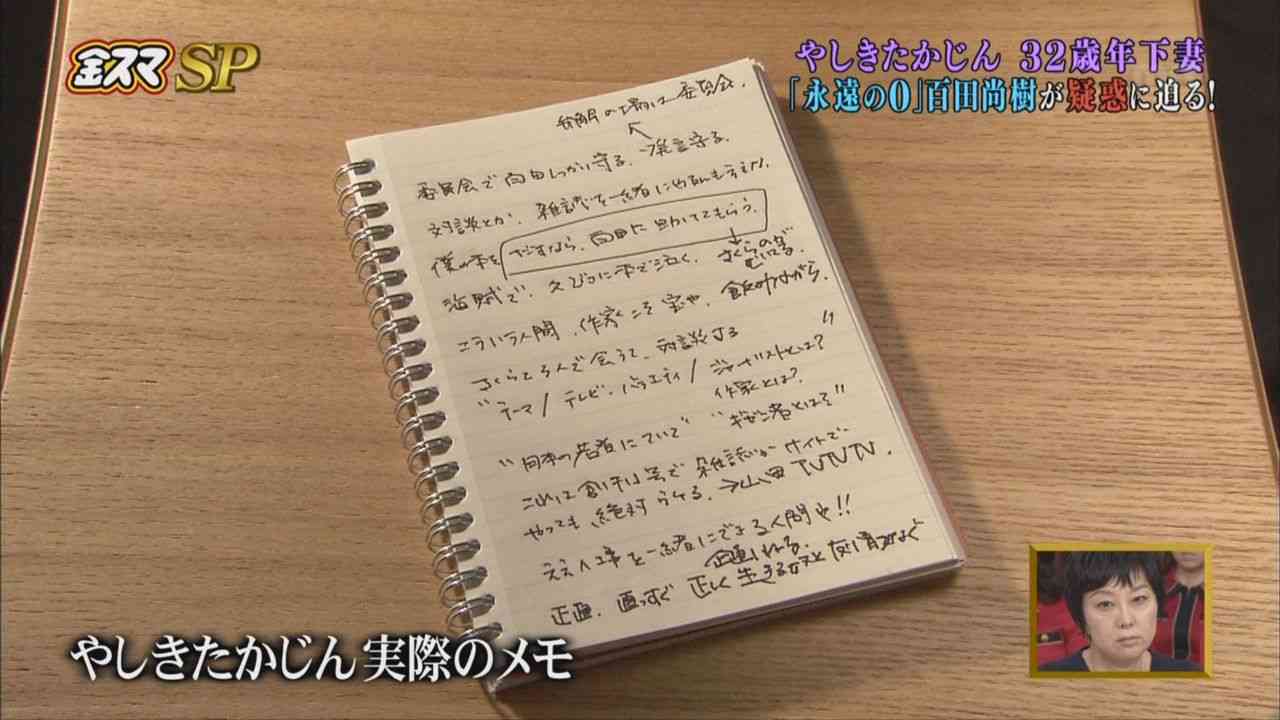 金スマSP
やしきたかじん 32歳年下妻
「永遠の0」百田尚樹が疑惑に迫る!
の場は委員会.
委員会で百田しっかり守る. →発言守る.
対談とか. 雑誌で一緒にやるんもええ
僕の本を だすなら. 百田に助けてもらう.
海賊で. 久びさに本で泣く. さくらの
こういう人間. 作家こそ宝や. 飯
さくらと3人で会うて. 対談する
"テーマ/テレビ. バラエティ/ジャーナリストとは?
作家とは?
"日本の若者について" "ギゼン者とは?"
これは 雑誌 サイトで
やっても絶対ウケる. → TVTVTV.
ええ仕事を一緒にできる人間や!!
正直. 真っすぐ 正しく生きる奴と友情
やしきたかじん 実際のメモ